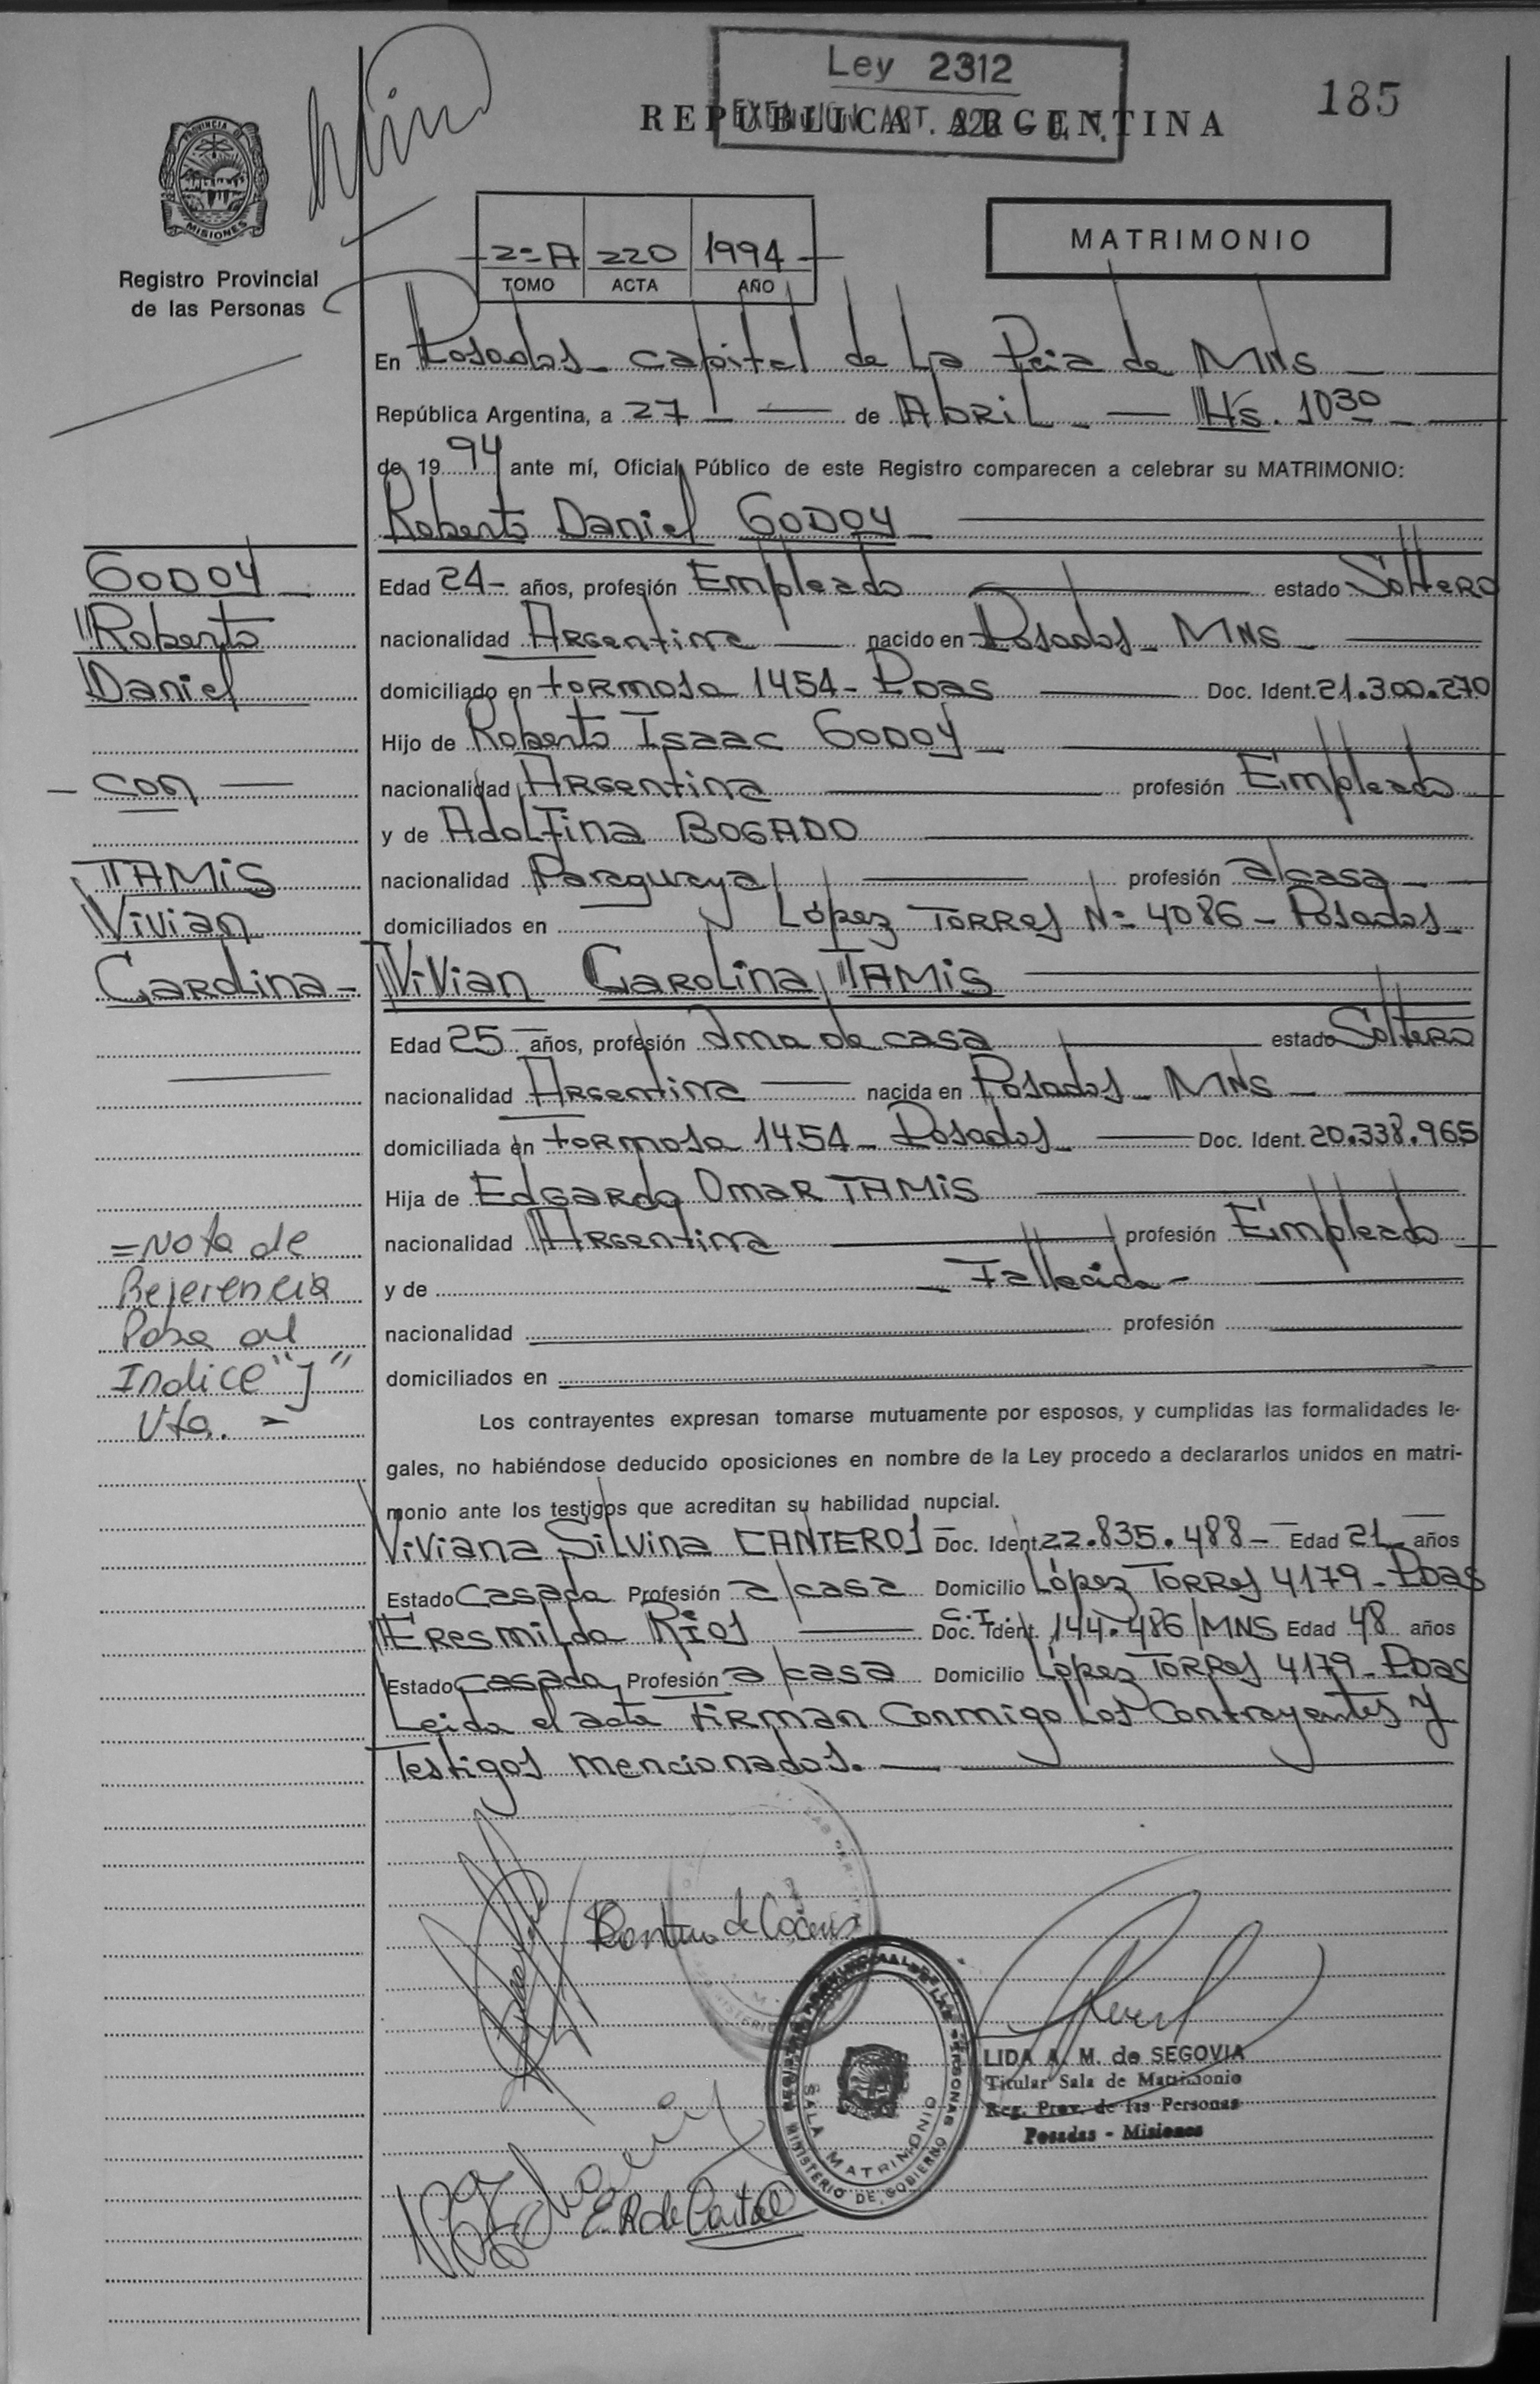 Ley 2312
185
REPUBLICA ARGENTINA
PROVINCIA DE
MISIONES
Registro Provincial
de las Personas
2=A 220 1994
TOMO ACTA AÑO
MATRIMONIO
En Posadas - Capital de la Pcia de MNS -
República Argentina, a 27 - de Abril - Hs. 10 30 -
de 19 94 ante mí, Oficial Público de este Registro comparecen a celebrar su MATRIMONIO:
Roberto Daniel GODOY -
GODOY -
Roberto
Daniel
- con -
TAMiS
Vivian
Carolina -
Edad 24 - años, profesión Empleado estado Soltero
nacionalidad Argentina nacido en Posadas - MNS -
domiciliado en Formosa 1454 - Pdas Doc. Ident. 21.300.270
Hijo de Roberto Isaac GODOY -
nacionalidad Argentina profesión Empleado
y de Adolfina BOGADO
nacionalidad Paraguaya profesión a/casa -
domiciliados en López Torres N= 4086 - Posadas -
Vivian Carolina TAMiS
Edad 25 años, profesión Ama de casa estado Soltera
nacionalidad Argentina nacida en Posadas - MNS -
domiciliada en Formosa 1454 - Posadas - Doc. Ident. 20.338.965
Hija de Edgardo Omar TAMiS
nacionalidad Argentina profesión Empleado
y de - Fallecida -
nacionalidad profesión
domiciliados en
= Nota de
Referencia
Pasa al
Indice "J"
Vta. -
Los contrayentes expresan tomarse mutuamente por esposos, y cumplidas las formalidades le-
gales, no habiéndose deducido oposiciones en nombre de la Ley procedo a declararlos unidos en matri-
monio ante los testigos que acreditan su habilidad nupcial.
Viviana Silvina CANTEROS Doc. Ident. 22.835.488 - Edad 21 años
Estado Casada Profesión a/casa Domicilio López Torres 4179 - Pdas
Eresmilda RIOS C.I. Doc. Ident. 144.486/MNS Edad 48 años
Estado Casada Profesión a/casa Domicilio López Torres 4179 - Pdas
Leida el acta Firman Conmigo Los Contrayentes y
Testigos mencionados. -
LIDA A. M. de SEGOVIA
Titular Sala de Matrimonio
Reg. Prov. de las Personas
Posadas - Misiones
SALA MATRIMONIO
MINISTERIO DE GOBIERNO